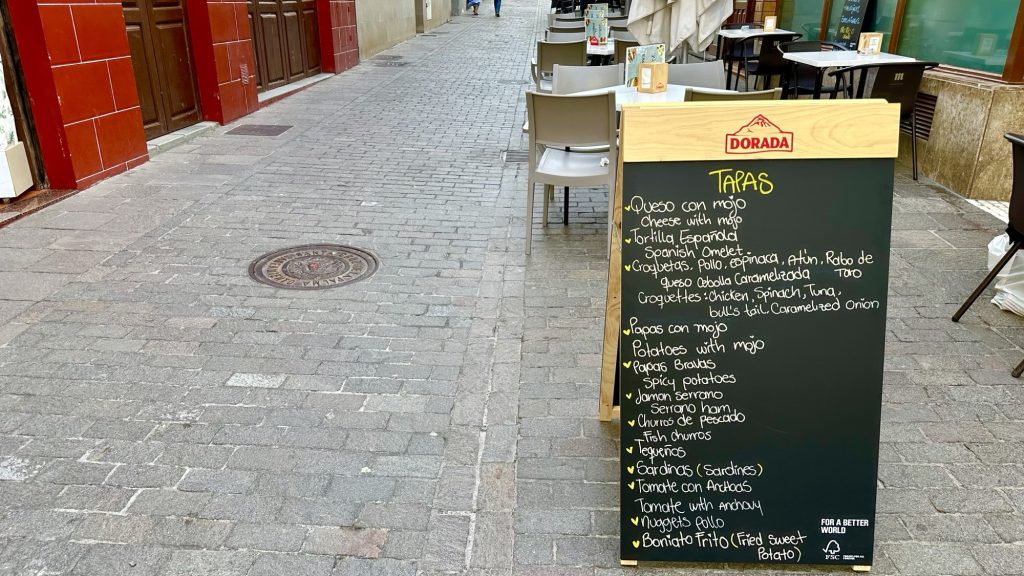 DORADA
TAPAS
Queso con mojo
Cheese with mojo
Tortilla Española
Spanish Omelet
Croqbetas. Pollo, Espinaca, Atún, Rabo de
queso Cebolla Caramelizada Toro
Croquettes: chicken, Spinach, Tuna,
bull's tail, Caramelized Onion
Papas con mojo
Potatoes with mojo
Papas Bravas
Spicy potatoes
Jamon serrano
Serrano ham
Churros de pescado
Fish churros
Tequeños
Sardinas (Sardines)
Tomate con Anchoas
Tomate with Anchovy
Nuggets Pollo
Boniato Frito (Fried Sweet
Potato)
FOR A BETTER
WORLD
FSC